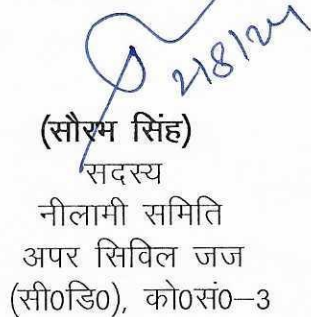 2/8/24
(सौरभ सिंह)
सदस्य
नीलामी समिति
अपर सिविल जज
(सी0डि0), को0सं0–3